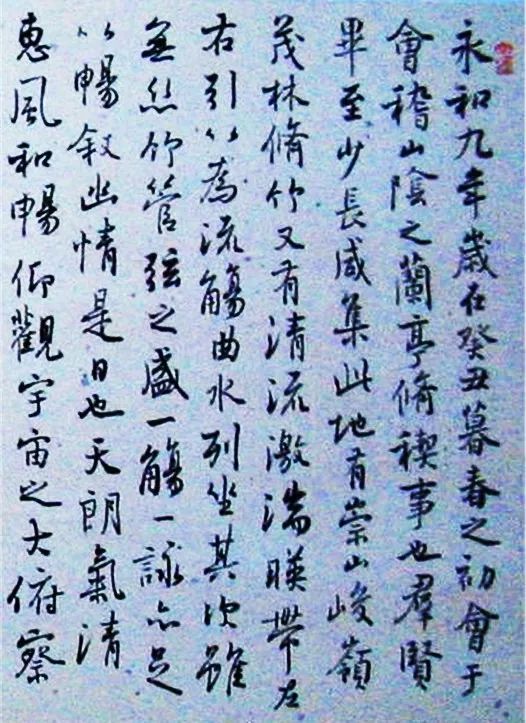 永和九年歲在癸丑暮春之初會于
會稽山陰之蘭亭脩稧事也羣賢
畢至少長咸集此地有崇山峻嶺
茂林脩竹又有清流激湍暎帶左
右引以為流觴曲水列坐其次雖
無絲竹管弦之盛一觴一詠亦足
以暢敘幽情是日也天朗氣清
惠風和暢仰觀宇宙之大俯察